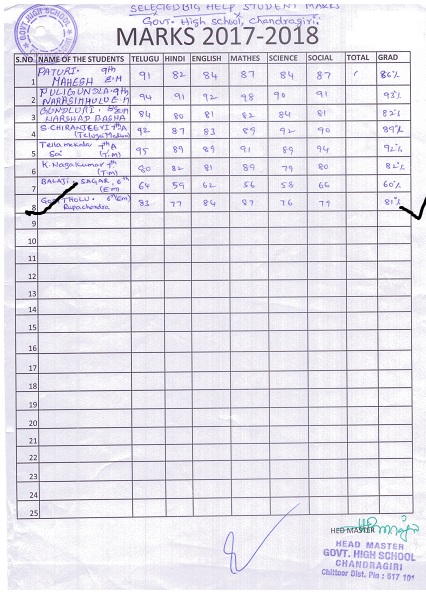 SELECTED BIG HELP STUDENT MARKS
Govt. High school, Chandragiri.
GOVT. HIGH SCHOOL
MARKS 2017-2018
S.NO NAME OF THE STUDENTS TELUGU HINDI ENGLISH MATHES SCIENCE SOCIAL TOTAL GRAD
PATURI. 9th
1 MAHESH E.M 91 82 84 87 84 87 86%
PULIGUNDLA. 9th
2 NARASIMHULU E.M 94 91 92 98 90 91 93%
GUNDLURI.
3 HARSHAD BASHA 84 80 81 82 84 81 82%
S. CHIRANJEEVI 7th A
4 (Telugu Medium) 92 87 83 89 92 90 89%
Tellamekala 7th A
5 Sai (T.M) 95 89 89 91 89 94 92%
K. Nagakumar 7th
6 (T.M) 80 82 81 89 79 80 82%
BALAJI. SAGAR, 6th
7 (E.M) 64 59 62 56 58 66 60%
THOLU. 6th (EM)
8 Rupachandra 83 77 84 87 76 79 81%
9
10
11
12
13
14
15
16
17
18
19
20
21
22
23
24
25
HED MASTER
HEAD MASTER
GOVT. HIGH SCHOOL
CHANDRAGIRI
Chittoor Dist. Pin : 517 101